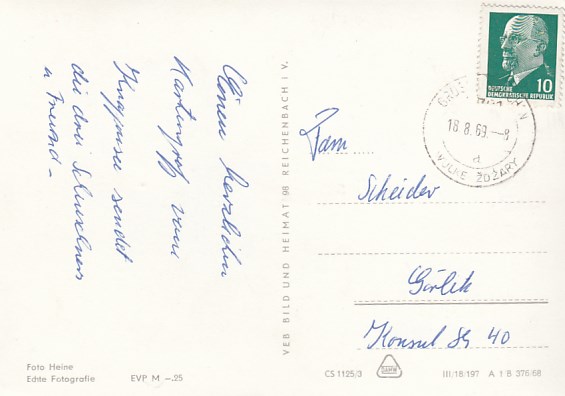 Einen herzlichen
Kartengruß vom
Knappensee sendet
die drei Scheuchners
u Freund -
VEB BILD UND HEIMAT 98 REICHENBACH i V.
Fam
Scheider
Görlitz
Konsul Str 40
DEUTSCHE
DEMOKRATISCHE REPUBLIK
10
18.8.69.-8
d
WULKE ŽDŽARY
Foto Heine
Echte Fotografie EVP M -.25
CS 1125/3
III/18/197 A 1 B 376/68